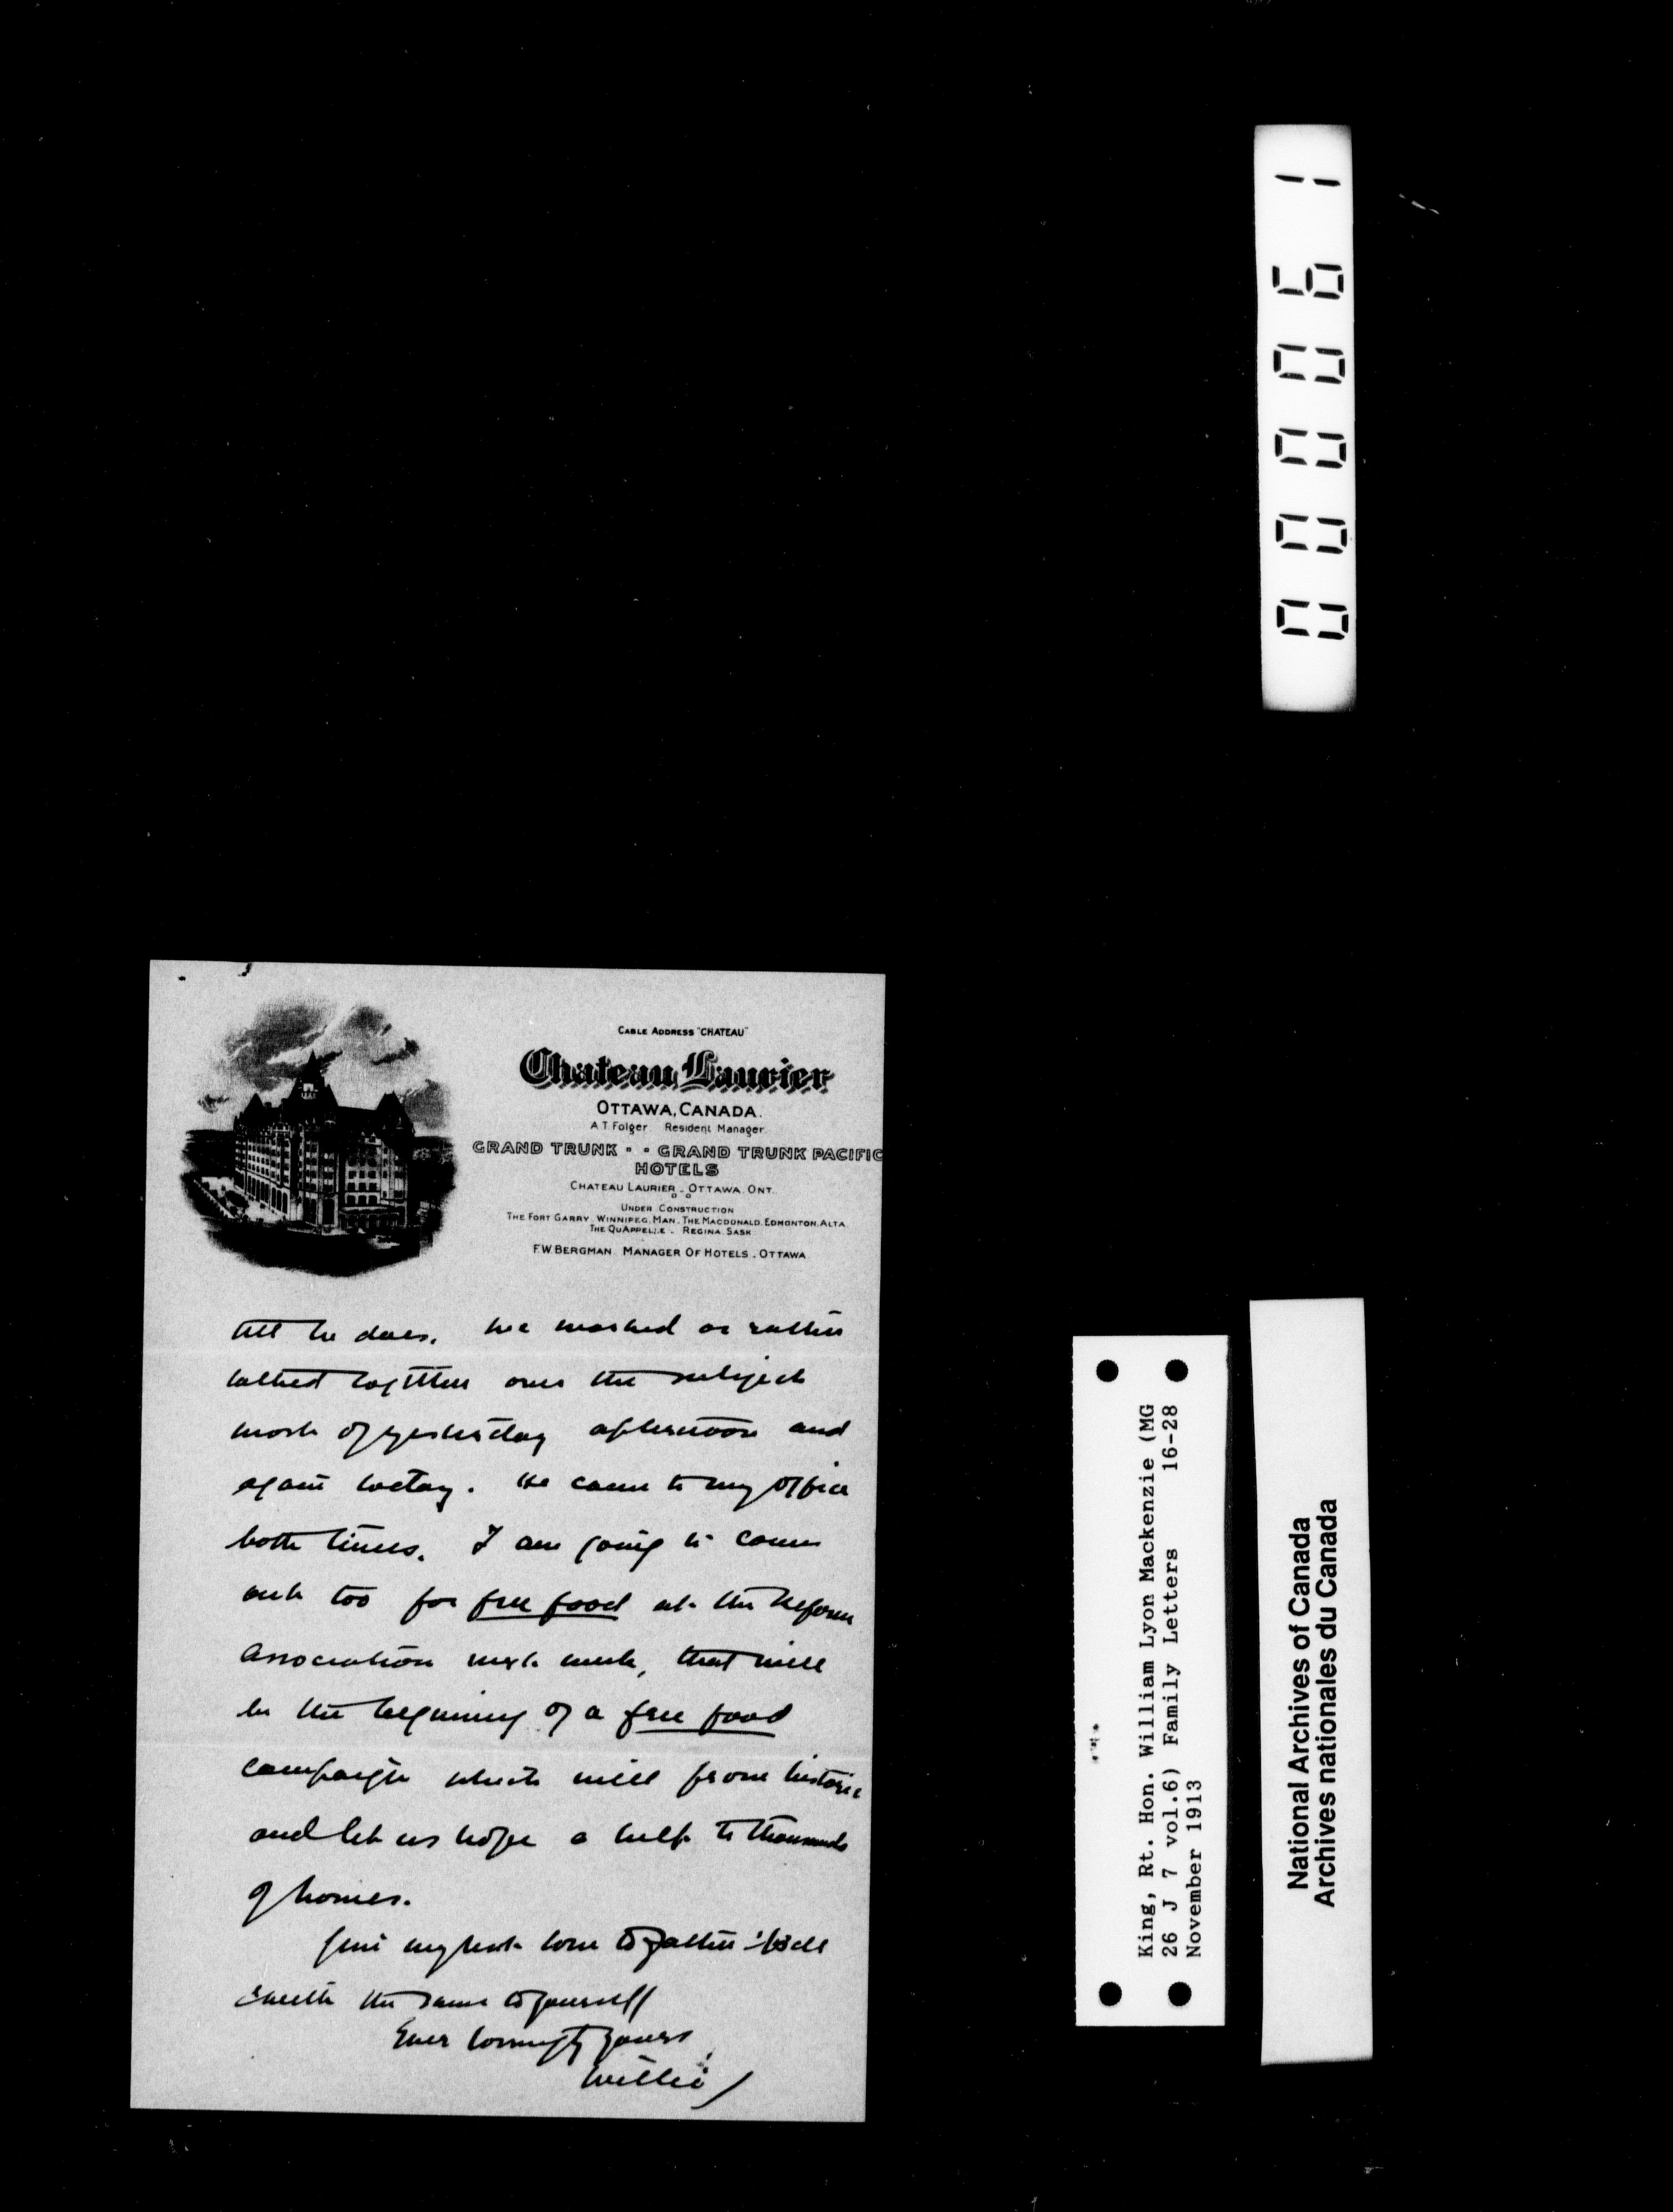 CABLE ADDRESS "CHATEAU"
Chateau Laurier
OTTAWA, CANADA.
A.T. Folger Resident Manager.
GRAND TRUNK - - GRAND TRUNK PACIFIC
HOTELS
CHATEAU LAURIER - OTTAWA. ONT.
UNDER CONSTRUCTION
THE FORT GARRY, WINNIPEG, MAN. THE MACDONALD, EDMONTON, ALTA.
THE QUAPPELLE - REGINA. SASK.
F.W. BERGMAN. MANAGER OF HOTELS. OTTAWA
till he does. We worked or rather
talked together over the subject
most of yesterday afternoon and
again today. He came to my office
both times. I am going to come
out too for free food at the Reform
Association next week, that will
be the beginning of a free food
campaign which will prove historic
and let us hope a help to thousands
of homes.
Give my best love to father & Bell
with the same to yourself
Ever lovingly yours,
Willie
000061
King, Rt. Hon. William Lyon Mackenzie (MG
26 J 7 vol.6) Family Letters 16-28
November 1913
National Archives of Canada
Archives nationales du Canada